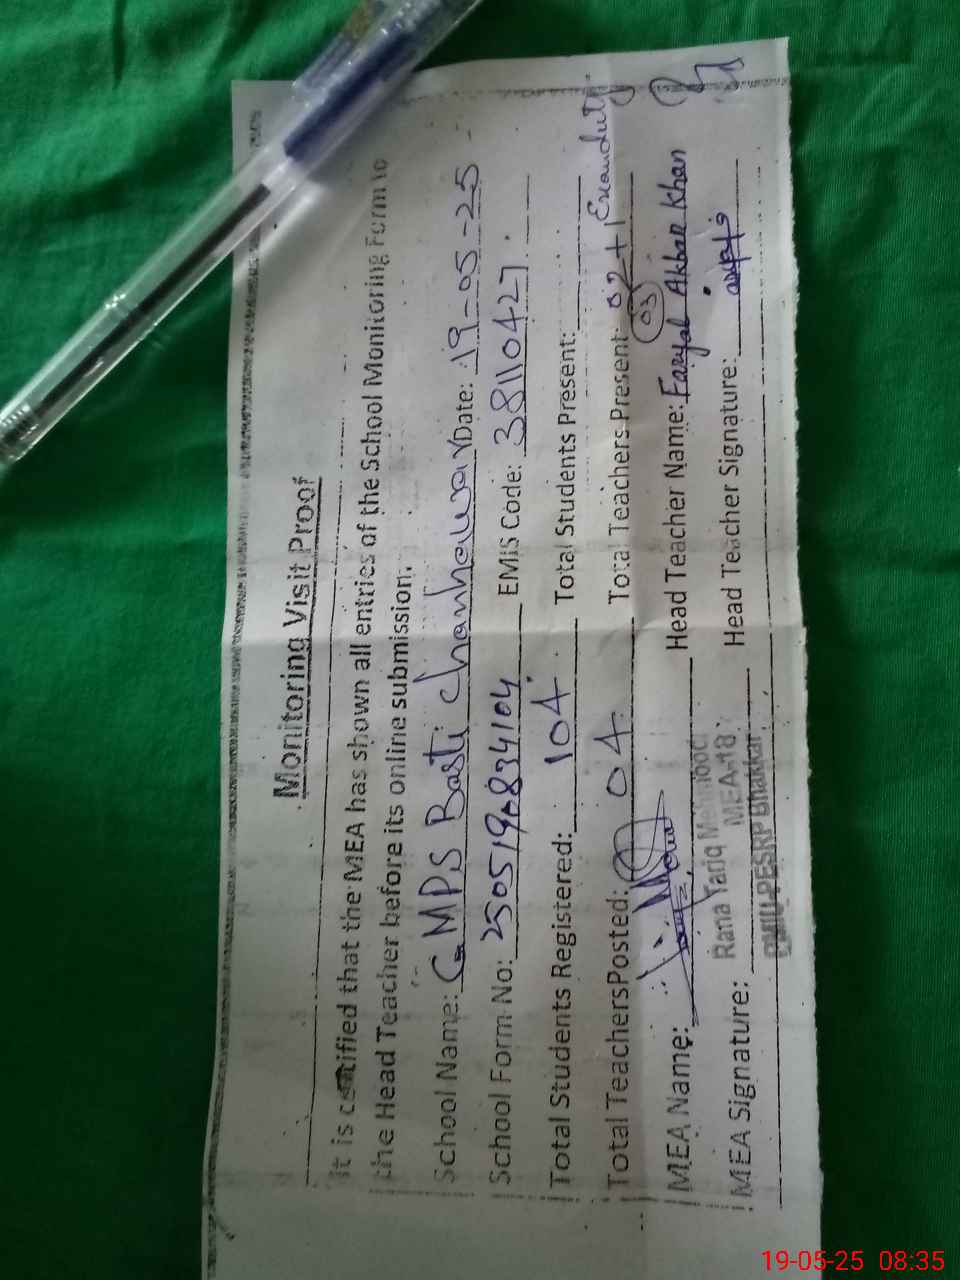 Monitoring Visit Proof
It is certified that the MEA has shown all entries of the School Monitoring Form to
the Head Teacher before its online submission.
School Name: GMPS Basti Chanhalwar Date: 19-05-25
School Form No: 2505190834104 EMIS Code: 38110427
Total Students Registered: 104 Total Students Present:
Total Teachers Posted: 04 Total Teachers Present: 02+1 Exam duty
03
MEA Name: Head Teacher Name: Faryal Akbar Khan
Rana Tariq Mehmood
MEA-18
MEA Signature: Head Teacher Signature:
PMIU-PESRP Bhakkar
19-05-25 08:35